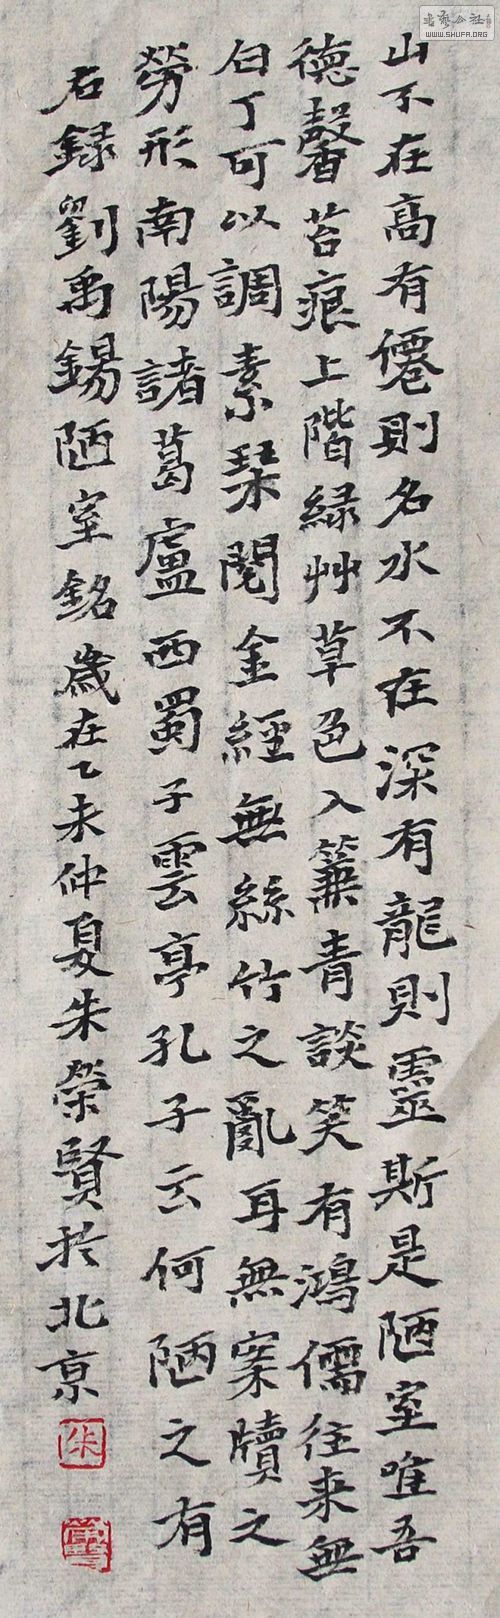 山不在高有僊則名水不在深有龍則靈斯是陋室唯吾
德馨苔痕上階綠艸草色入簾青談笑有鴻儒往来無
白丁可以調素琹閱金經無絲竹之亂耳無案牘之
勞形南陽諸葛盧西蜀子雲亭孔子云何陋之有
右録劉禹錫陋室銘歲在乙未仲夏朱榮賢於北京
朱
WWW.SHUFA.ORG